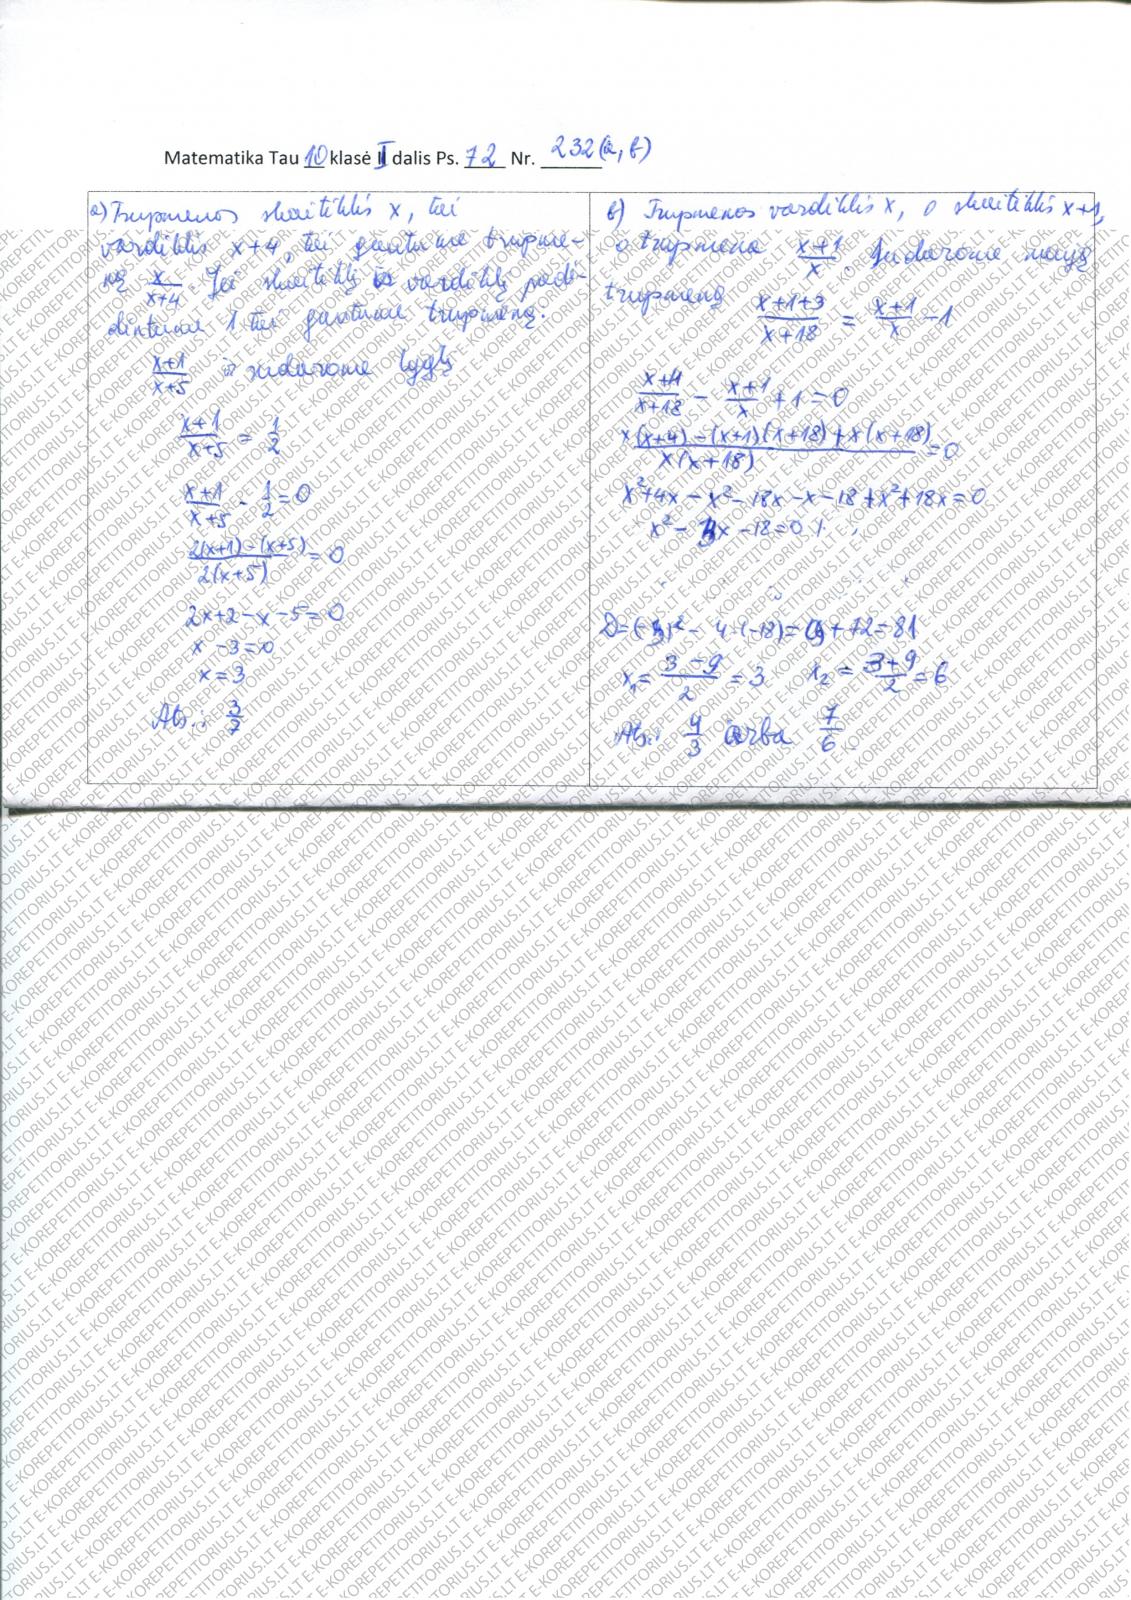 Matematika Tau 10 klasė II dalis Ps. 72 Nr. 232(a, b)
a) Trupmenos skaitiklis x, tai
vardiklis x+4, tai gautume trupme-
ną x/(x+4). Jei skaitiklį ir vardiklį padi-
dintume 1 tai gautume trupmeną.
(x+1)/(x+5) ir sudarome lygtį
(x+1)/(x+5) = 1/2
(x+1)/(x+5) - 1/2 = 0
(2(x+1)-(x+5))/(2(x+5)) = 0
2x+2-x-5=0
x-3=0
x=3
Ats.: 3/7
b) Trupmenos vardiklis x, o skaitiklis x+1,
o trupmena (x+1)/x. Sudarome naują
trupmeną (x+1+3)/(x+18) = (x+1)/x - 1
(x+4)/(x+18) - (x+1)/x + 1 = 0
(x(x+4)-(x+1)(x+18)+x(x+18))/(x(x+18)) = 0
x²+4x-x²-18x-x-18+x²+18x=0
x²-3x-18=0
D=(-3)²-4·(-18)=9+72=81
x₁=(3-9)/2=3 x₂=(3+9)/2=6
Ats.: 4/3 arba 7/6
E-KOREPETITORIUS.LT